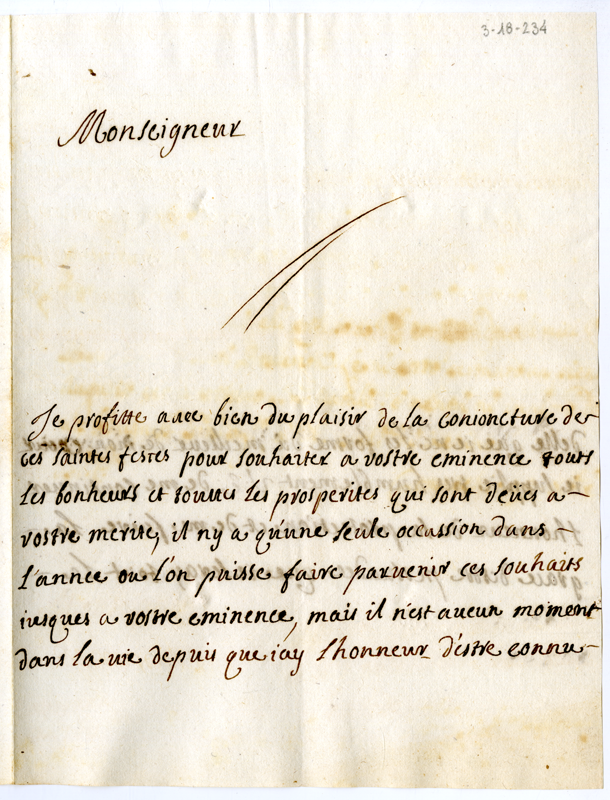 3-18-234
Monseigneur
Je profitte avec bien du plaisir de la conioncture de
ces saintes festes pour souhaitter a vostre eminence touts
les bonheurs et touttes les prosperites qui sont deües a
vostre merite, il ny a qu'une seule occassion dans
l'annee ou l'on puisse faire parvenir ces souhaits
iusques a vostre eminence, mais il n'est aucun moment
dans la vie depuis que i'ay l'honneur d'éstre connu